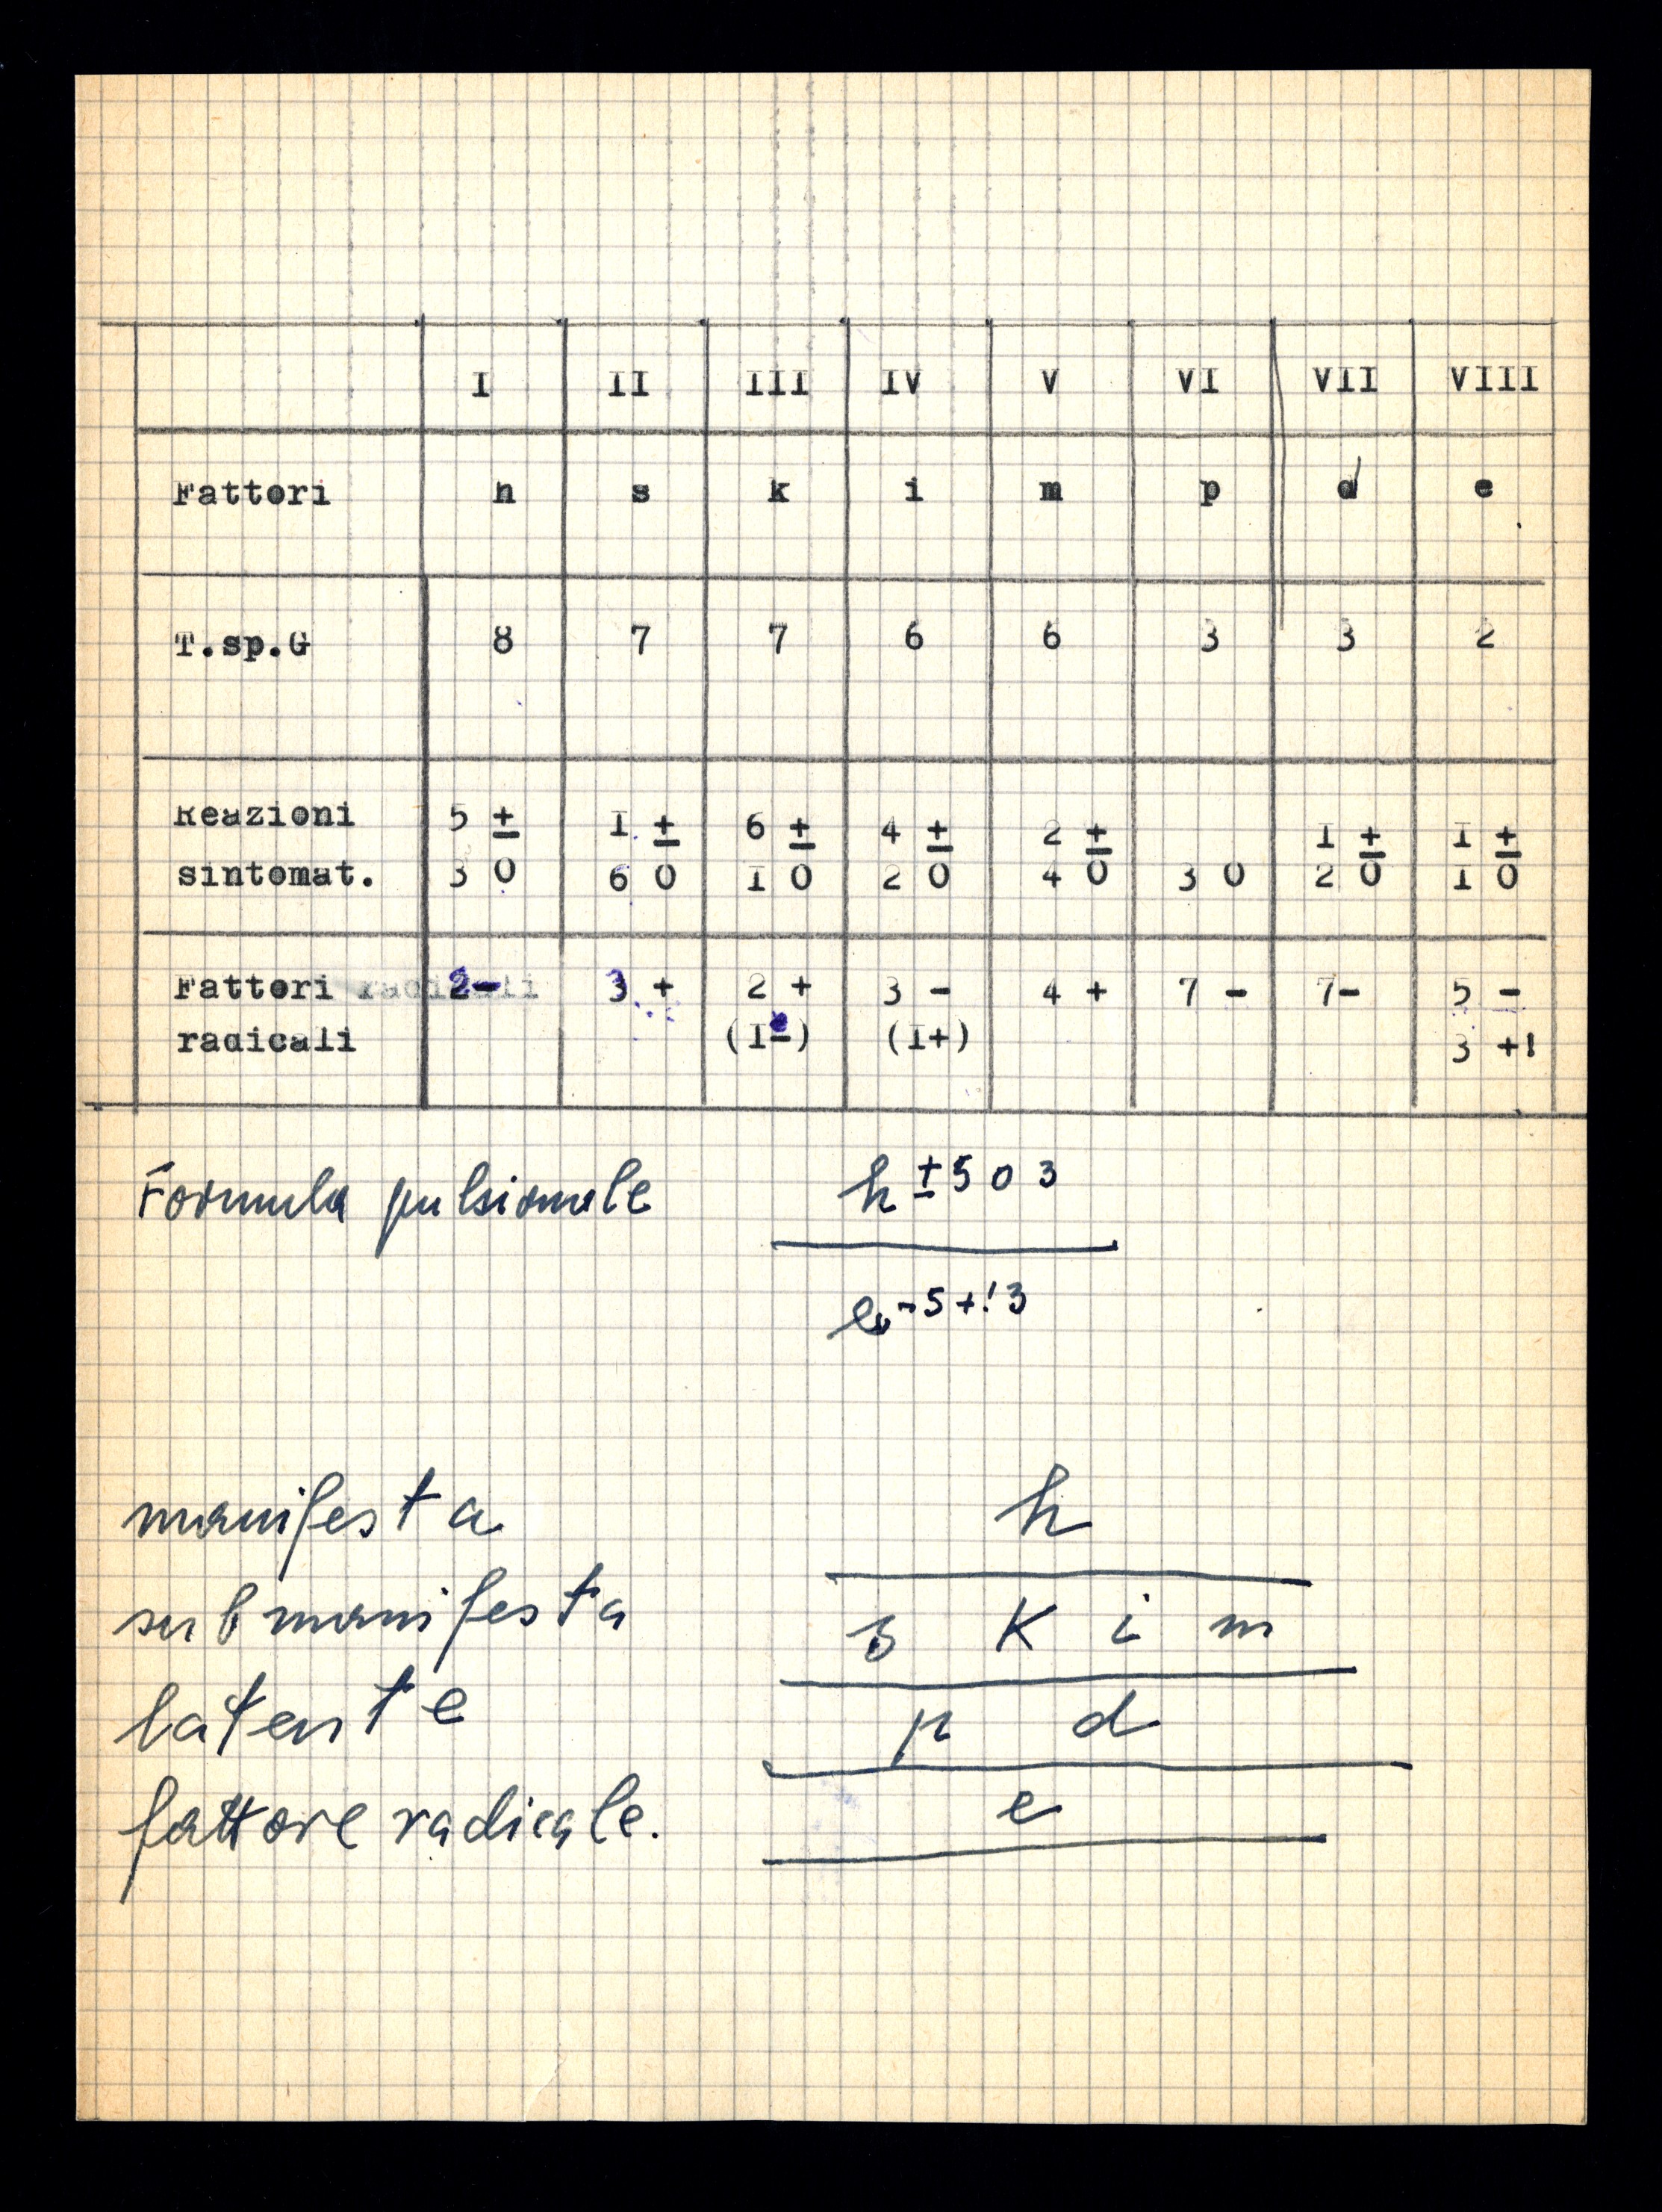 I II III IV V VI VII VIII
Fattori h s k i m p d e
T.sp.G 8 7 7 6 6 3 3 2
Reazioni 5 ± I ± 6 ± 4 ± 2 ± I ± I ±
sintomat. 3 0 6 0 I 0 2 0 4 0 3 0 2 0 I 0
Fattori radicali 2- 3 + 2 + 3 - 4 + 7 - 7- 5 -
radicali (I-) (I+) 3 +!
Formula pulsionale h ± 5 0 3
e - 5 +! 3
manifesta h
submanifesta s K i m
latente p d
fattore radicale. e